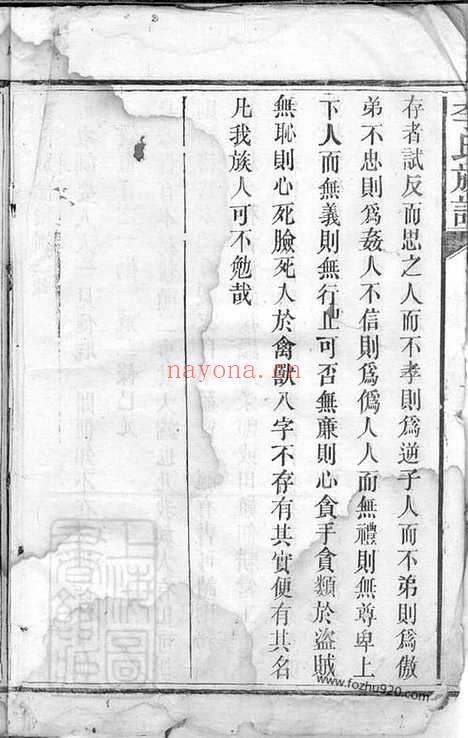 李氏族譜
存者試反而思之人而不孝則為逆子人而不弟則為傲
弟不忠則為姦人不信則為偽人人而無禮則無尊卑上
下人而無義則無行止可否無亷則心貪手貪類於盜賊
無恥則心死臉死入於禽獸八字不存有其實便有其名
凡我族人可不勉哉
nayona.cn
上海圖書館藏
www.fozhu920.com